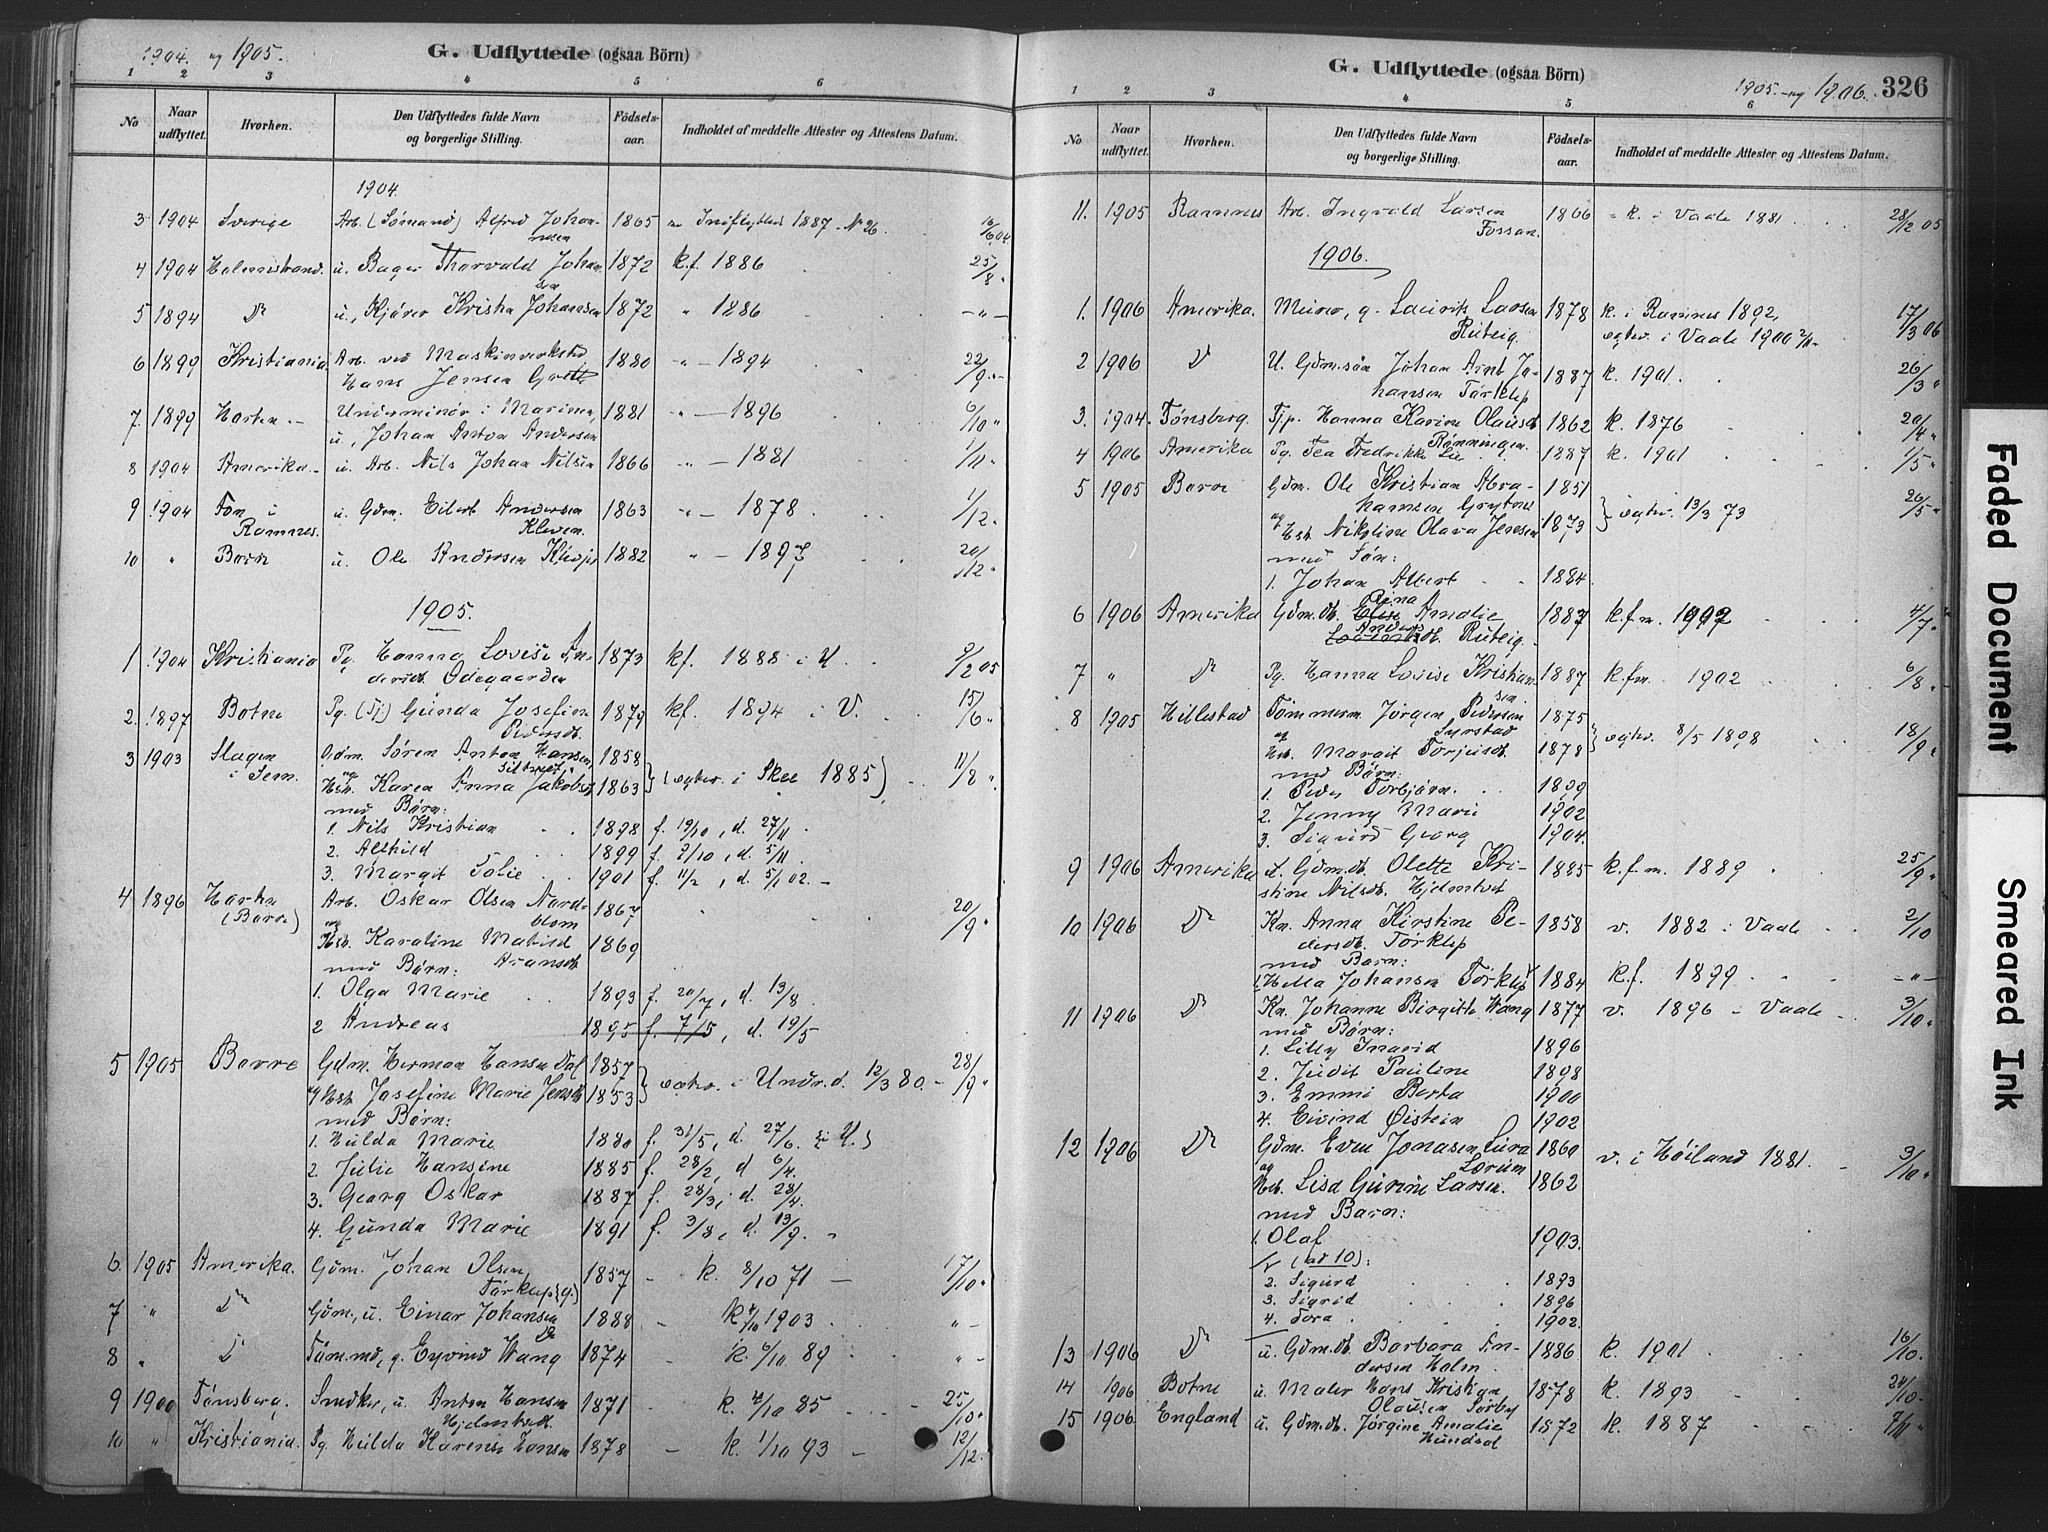 1904. og 1905.
G. Udflyttede (ogsaa Börn)
1 2 3 4 5 6
No
Naar udflyttet.
Hvorhen.
Den Udflyttedes fulde Navn og borgerlige Stilling.
Fødsels-aar.
Indholdet af meddelte Attester og Attestens Datum.
1904
3 1904 Sverige Arb. (Sømand) Alfred Johan- 1865 Indflyttet 1887 No 26 16/6 04.
nesen
4 1904 Holmestrand u. Bager Thorvald Johan 1872 k.f. 1886 25/8 "
sen
5 1894 Do u, Kjører Kristia Johansen 1872 " 1886 — " —
6 1899 Kristiania Arb. ved Maskinverksted 1880 " — 1894 22/9
Hans Jensen
7 1899 Horten Underminør i Marinen, 1881 " — 1896 6/10 "
u, Johan Anton Andersen
8 1904 Amerika u. Arb. Nils Johan Nilsen 1866 " — 1881 1/11
9 1904 Fon i u. Gdm. Eilert Andersen 1863 " — 1878 1/12
Ramnes. Kleven
10 " Borre u. Ole Andersen 1882 " — 1897 20/12
1905.
1 1904 Kristiania Pg. Hanna Lovise An- 1873 kf. 1888 i U. 9/2 05
dersdt. Ødegaarden
2. 1897 Botne Pg. (Tj) Gunda Josefine 1879 kf. 1894 i V. 15/6
Pedersdt.
3 1903 Slagen Gdm. Søren Anton Hansen 1858
i Sem. og Hst. Karen Anna Jakobsd 1863 (egtev. i Skee 1885) 11/8 "
med Børn:
1. Nils Kristian 1898 f. 19/10, d. 27/11
2. Alfhild 1899 f. 2/10, d. 5/11
3. Margit Tolie 1901 f. 11/2, d. 5/1 02.
4 1896 Horten Arb. Oskar Olsen Nord- 1867 20/9 "
(Borre) og blom
Hst. Karoline Matild 1869
med Børn:
1. Olga Marie 1893 f. 20/7, d. 13/8
2 Andreas 1895 f. 7/5, d. 19/5
5 1905 Borre Gdm. Herman Hansen Dal 1857
og Hst. Josefine Marie Jensdt 1853 egtev. i Undr.d. 12/3 80. 28/9 "
med Børn:
1. Hulda Marie 1880 f. 31/5, d. 27/6. (i U.)
2 Julie Hansine 1885 f. 28/2, d 6/4.
3. Georg Oskar 1887 f. 28/3, d. 28/4.
4. Gunda Marie 1891 f. 3/8, d. 13/9.
6. 1905 Amerika. Gdm. Johan Olsen 1857 k. 8/10 71 17/10 "
Tørklep (g.)
7 " Do Gdm., u. Einar Johansen 1888 k 4/10 1903. " —
Do
8 " Do Tøm.md, g. Eyvind Wang 1874 k. 6/10 89 " —
9 1900 Tønsberg. Snedker, u. Anton Hansen 1871 k. 4/10 85 25/10 "
10 " Kristiania. Pg. Hulda Karensi Hansen 1878 k. 1/10 93 12/12.
G. Udflyttede (ogsaa Börn)
1905. og 1906. 326
1 2 3 4 5 6
No
Naar udflyttet.
Hvorhen.
Den Udflyttedes fulde Navn og borgerlige Stilling.
Födsels-aar.
Indholdet af meddelte Attester og Attestens Datum.
11. 1905 Ramnes Arb. Ingvald Larsen 1866 k. i Vaale 1881 28/12 05
Fossan.
1906.
1. 1906 Amerika. Murer, g. Laurits Larsen 1878 k. i Ramnes 1892, 17/3 06
Rustig. egtev. i Vaale 1900
2 1906 Do U. Gdm.søn Johan Arnt Jo- 1887 k. 1901. 26/3 "
hansen Tørklep
3. 1904 Tønsberg. Tjp. Hanna Karine Olausdt 1862 k. 1876 20/4 "
Rønningen.
4 1906 Amerika Pg. Tea Fredrikke Lie 1887 k. 1901 1/5 "
5 1905 Borre Gdm. Ole Kristian Abra- 1851
hamsen Grytnes
og Hst. Nikoline Olava Jensen 1873 egtev. 13/3 73 26/5 "
med Søn:
1. Johan Albert 1884
6 1906 Amerika Gdm.dt. Elise Amalie 1887 k.f.m. 1902 4/7 "
Anders Rustig.
7 " Do Pg. Hanna Lovise Kristian- 1887 k.fm. 1902 6/8 "
sen
8 1905 Hillestad Tømmerm Jørgen Pedersen 1875
og Hst. Margit Torjusdt. 1878 egtev. 8/5 1898 18/9 "
med Børn:
1. Peder Torbjørn. 1899
2. Jenny Marie 1902
3. Sigurd Georg 1904.
9 1906 Amerika u. Gdm.dt. Olette Kri- 1885 k.f.m. 1889 25/9 "
stine Nilsdt. Hjelmtvet
10 1906 Do Kn. Anna Kirstine Pe- 1858 v. 1882 i Vaale 2/10
dersdt. Tørklep
med Barn:
1. Hella Johansen Tørklep 1884 k.f. 1899 — " —
11 1906 Do Kn. Johanne Birgitte Wang 1877 v. 1896 — Vaale 3/10 "
med Børn:
1. Lilly Ingrid 1896
2. Judit Pauline 1898
3. Emmi Berta 1900
4. Eivind Øistein 1902
12 1906 Do Gdm. Even Jonasen Lura 1860 v. i Høiland 1881. 3/10 "
Lorum
og Hst. Lisa Gurine Larsen. 1862
med Barn:
1. Olaf 1903.
(ad 10):
2. Sigurd 1893
3. Sigrid 1896
4. Tora 1902.
13 1906 Do u. Gdm.dt. Barbara An- 1886 k. 1901. 16/10.
dersen Holm
14 1906 Botne u. Maler Hans Kristian 1878 k. 1893 24/10.
Olausen Sørby
15 1906 England u. Gdm.dt. Jørgine Amalie 1872 k. 1887 7/11 "
Faded Document
Smeared Ink